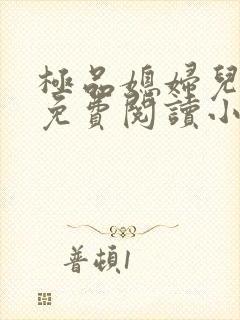 極品媳婦兒
免費閱讀小
普頓1